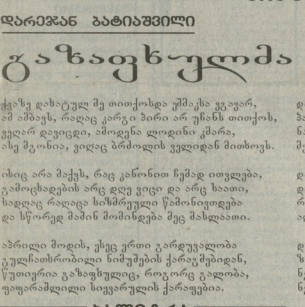 დარეჯან ბატიაშვილი
გაზაფხულმა
ქვაზე დახატულ მე თითქოსდა ეშმაკსა ვგავარ,
ამ ამბავს, რაღაც კარგი პირი არ უჩანს თითქოს,
ვეღარ დავიცდი, ამოდენა ლოდინი კმარა,
ასე მგონია, ვიღაც ბრძოლის ველიდან მითხოვს.
ისიც არა მაქვს, რაც კანონით ჩემად ითვლება,
გამოცხადების არც დღე ვიცი და არც საათი,
სადღაც რაღაცა სიზმრეული წამონივთდება
და სწორედ მაშინ მომინდება მეც მასლაათი.
აპრილი მოდის, ესეც ერთი გარდუვალობა
გულჩათხრობილი ნიშუმების ქარაგმებიდან,
წუთიერია გაზაფხულიც, როგორც გალობა,
ფაფარაშლილი სიყვარულის ქარაფებია.